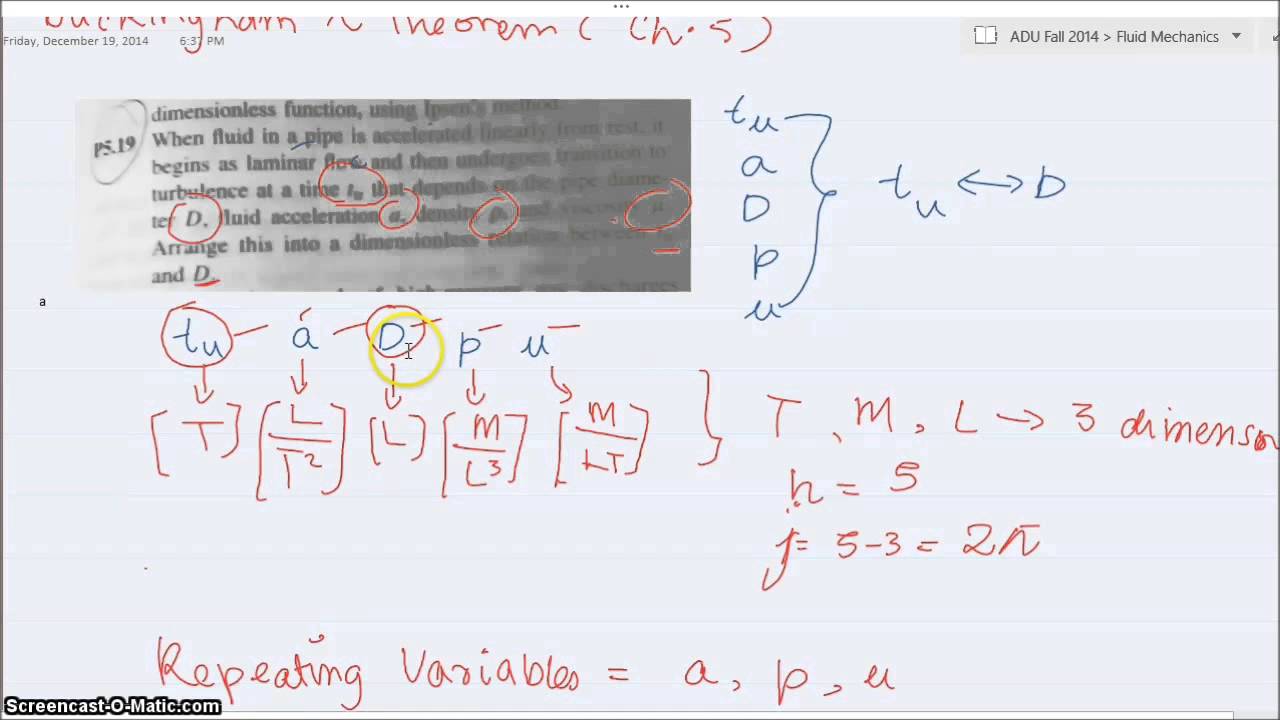 ...
Buckingham π Theorem ( Ch. 5 )
Friday, December 19, 2014 6:37 PM
ADU Fall 2014 > Fluid Mechanics
dimensionless function, using Ipsen's method.
P5.19 When fluid in a pipe is accelerated linearly from rest, it
begins as laminar flow and then undergoes transition to
turbulence at a time tu that depends on the pipe diame-
ter D, fluid acceleration a, density ρ, and viscosity μ.
Arrange this into a dimensionless relation between
and D.
tu
a
D
ρ
μ
tu ↔ D
a
tu a D ρ μ
[T] [L/T²] [L] [M/L³] [M/LT] } T, M, L → 3 dimension
n = 5
j = 5-3 = 2π
Repeating Variables = a, ρ, μ
Screencast-O-Matic.com